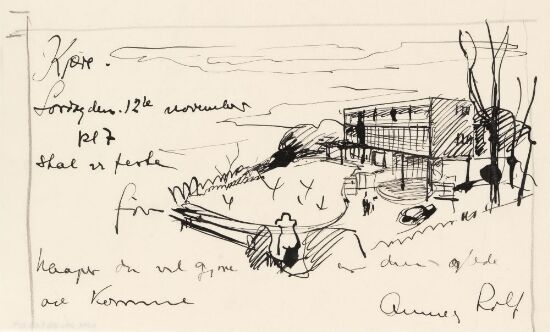 Kjære.
Lørdag den. 12te november
kl 7
skal vi feste
for
haaper du vil gjøre os den glede
at komme
Annes Rolf